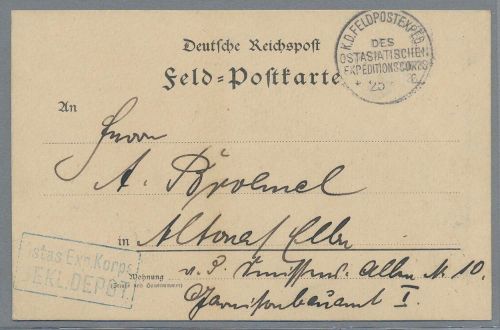 Deutsche Reichspost
Feld-Postkarte
K.D. FELDPOSTEXPED.
DES
OSTASIATISCHEN
EXPEDITIONSCORPS
25
An
Herrn
A. Broemel
in Altona/Elbe
Ostas. Exp. Korps
BEKL. DEPOT.
Wohnung
(Straße und Hausnummer)
Allee No 10.
Garnisonbauamt I.